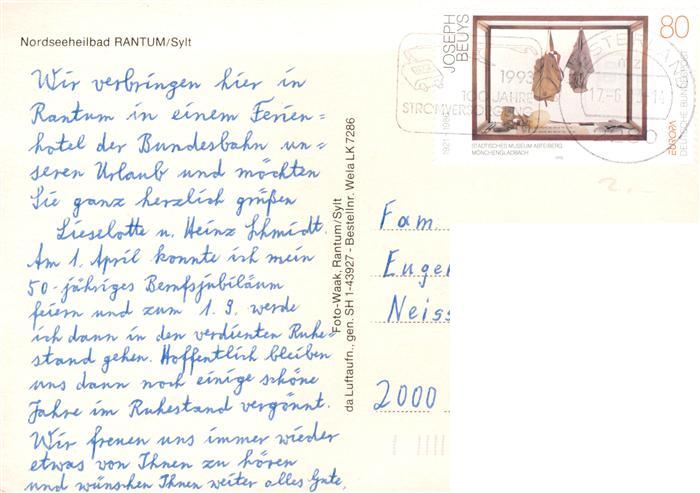 Nordseeheilbad RANTUM/Sylt
Wir verbringen hier in
Rantum in einem Ferien=
hotel der Bundesbahn un=
seren Urlaub und möchten
Sie ganz herzlich grüßen
Lieselotte u. Heinz Schmidt.
Am 1. April konnte ich mein
50-jähriges Berufsjubiläum
feiern und zum 1. 9. werde
ich dann in den verdienten Ruhe=
stand gehen. Hoffentlich bleiben
uns dann noch einige schöne
Jahre im Ruhestand vergönnt.
Wir freuen uns immer wieder
etwas von Ihnen zu hören
und wünschen Ihnen weiter alles Gute,
Foto-Waak, Rantum/Sylt
da Luftaufn., gen. SH 1-43927 - Bestellnr. Wela LK 7286
JOSEPH
BEUYS
1921 - 1986
80
STÄDTISCHES MUSEUM ABTEIBERG
MÖNCHENGLADBACH
EUROPA
DEUTSCHE BUNDESPOST
1993
100 JAHRE
2.-
Fam
Euge
Neiss
2000